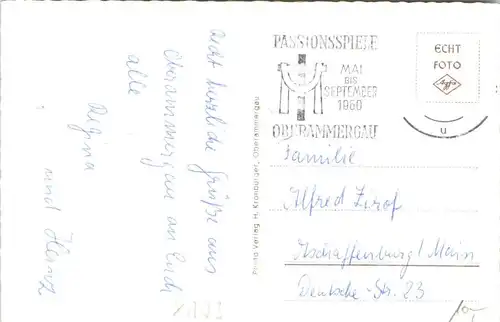 Recht herzliche Grüße aus
Oberammergau an Euch
alle.
Regina
und Heinz
Photo-Verlag H. Kronburger, Oberammergau
PASSIONSSPIELE
MAI
BIS
SEPTEMBER
1960
OBERAMMERGAU
ECHT
FOTO
Agfa
u
Familie
Alfred
Aschaffenburg / Main
Deutsche-Str. 23